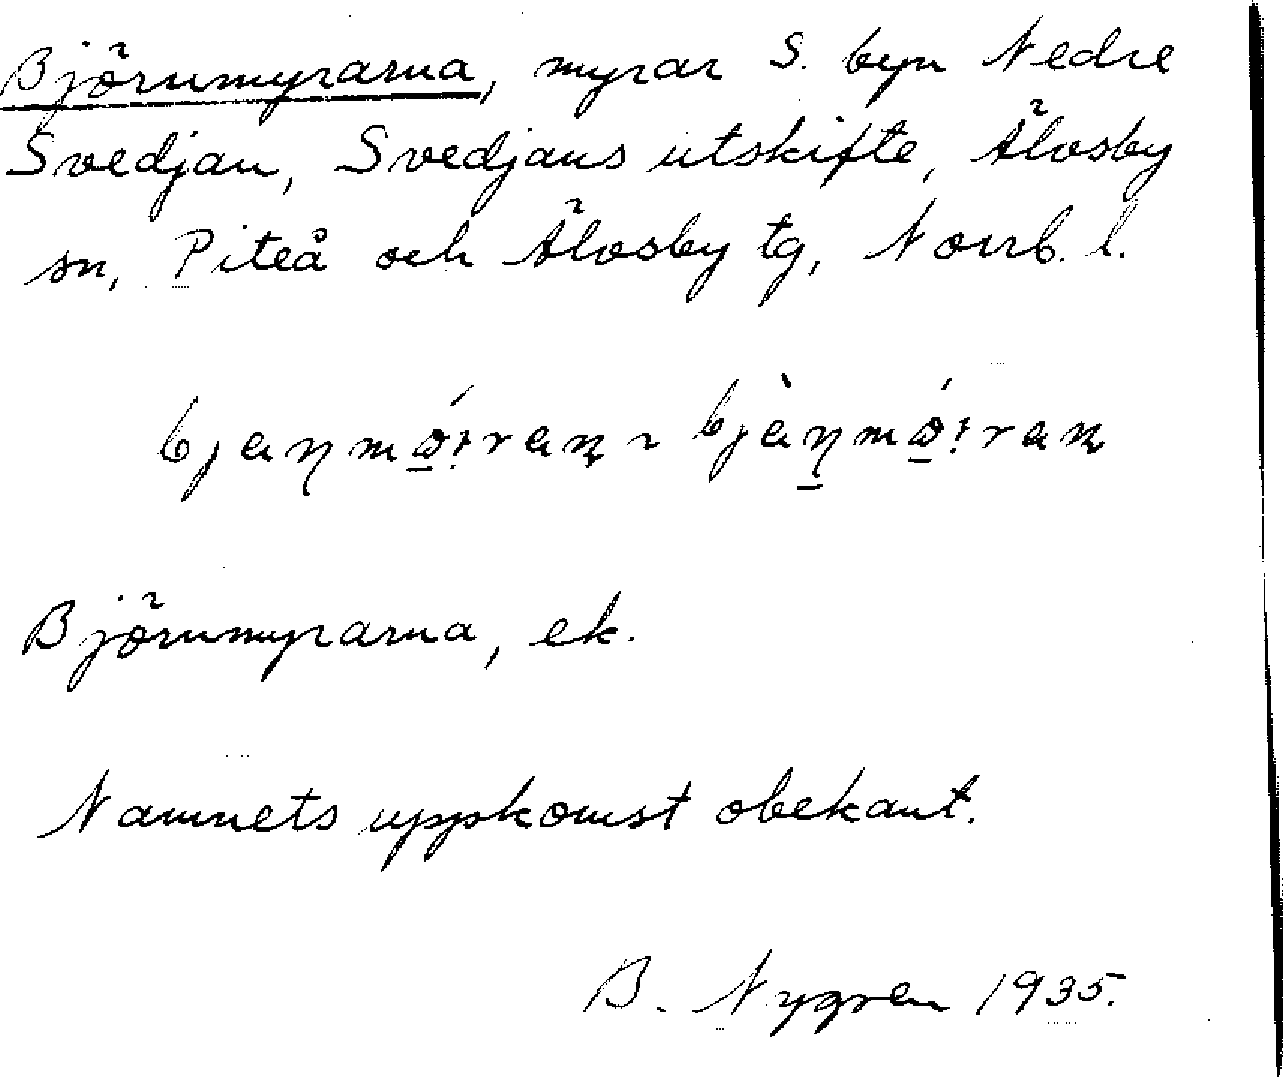 Björnmyrarna, myrar S. byn Nedre
Svedjan, Svedjans utskifte, Älvsby
sn, Piteå och Älvsby tg, Norrb. l.
Björnmyrarna, ek.
Namnets uppkomst obekant.
B. Nygren 1935.